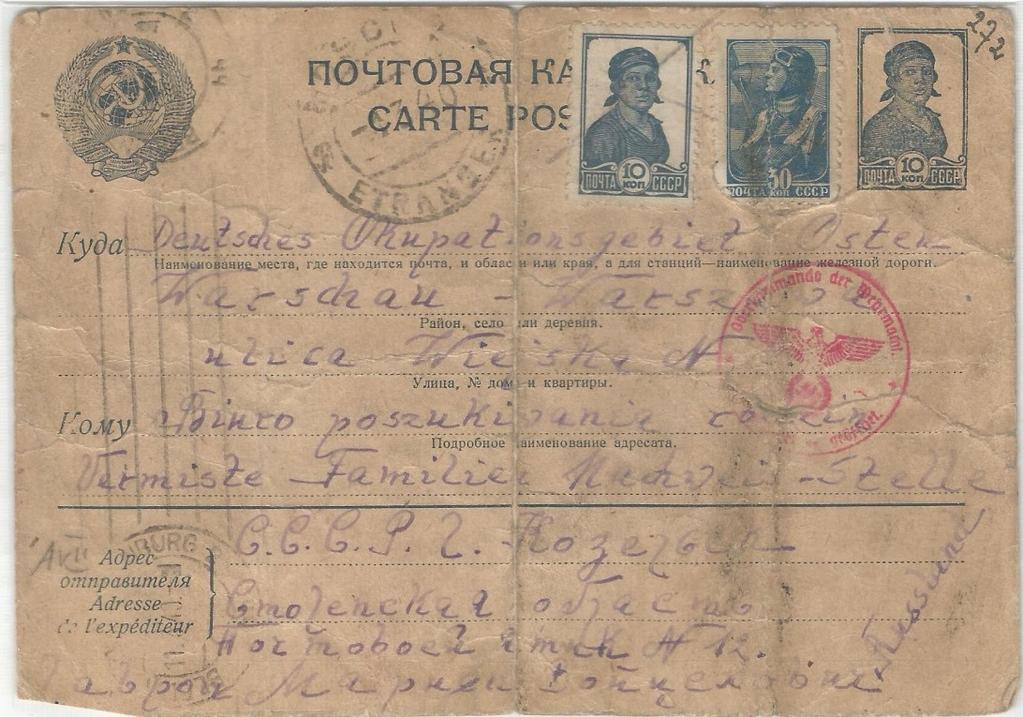 272
ПОЧТОВАЯ КА
CARTE POS
10 КОП
ПОЧТА СССР
30
ПОЧТА КОП СССР
10 КОП
ПОЧТА СССР
ETRANGER
Куда Deutsches Okupationsgebiet Osten
Наименование места, где находится почта, и области или края, а для станций—наименование железной дороги.
Warschau - Warszawa
Район, село или деревня.
ulica Wiejska N
Улица, № дома и квартиры.
Oberkommando der Wehrmacht
geprüft
Кому Biuro poszukiwania rodzin
Подробное наименование адресата.
Vermiste Familien Nachweis-Stelle
BURG
Адрес отправителя
Adresse de l'expéditeur
С.С.С.Р. г. Козельск
Смоленская область
Почтовой ящик N 12.
Марian
Russland